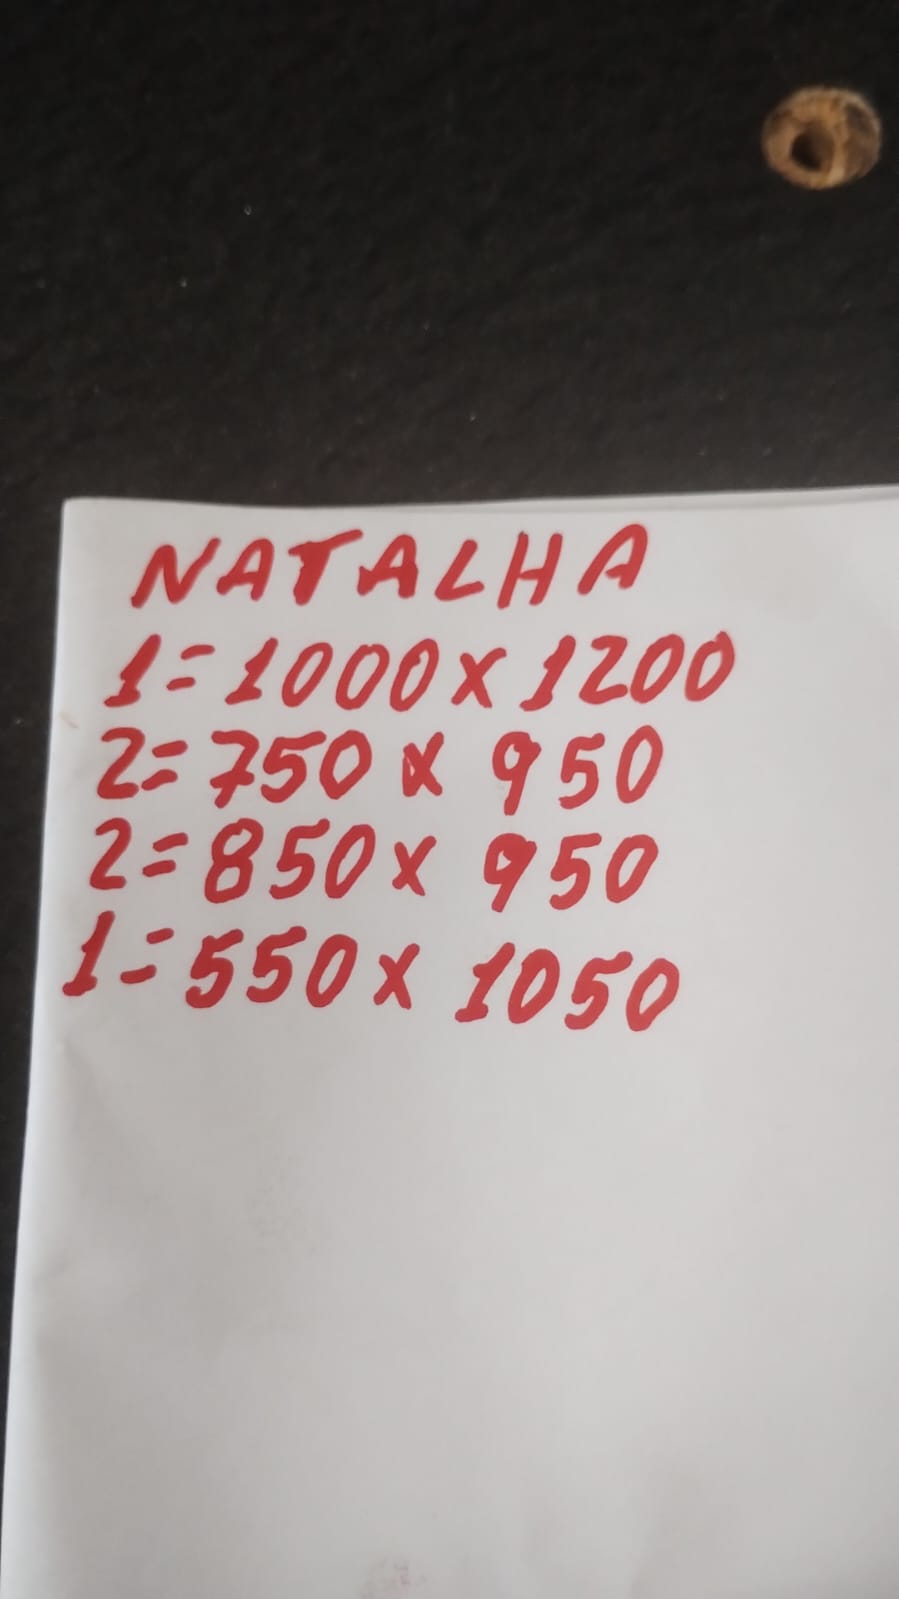 NATALHA
1=1000x1200
2=750x950
2=850x950
1=550x1050